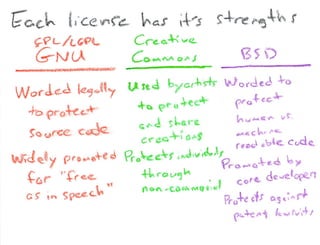 Each license has it's strengths
GPL/LGPL
GNU
Worded legally
to protect
source code
Widely promoted
for "free
as in speech"
Creative
Commons
Used by artists
to protect
and share
creations
Protects individuals
through
non-commercial
BSD
Worded to
protect
human vs.
machine
readable code
Promoted by
core developers
Protects against
patent lawsuits